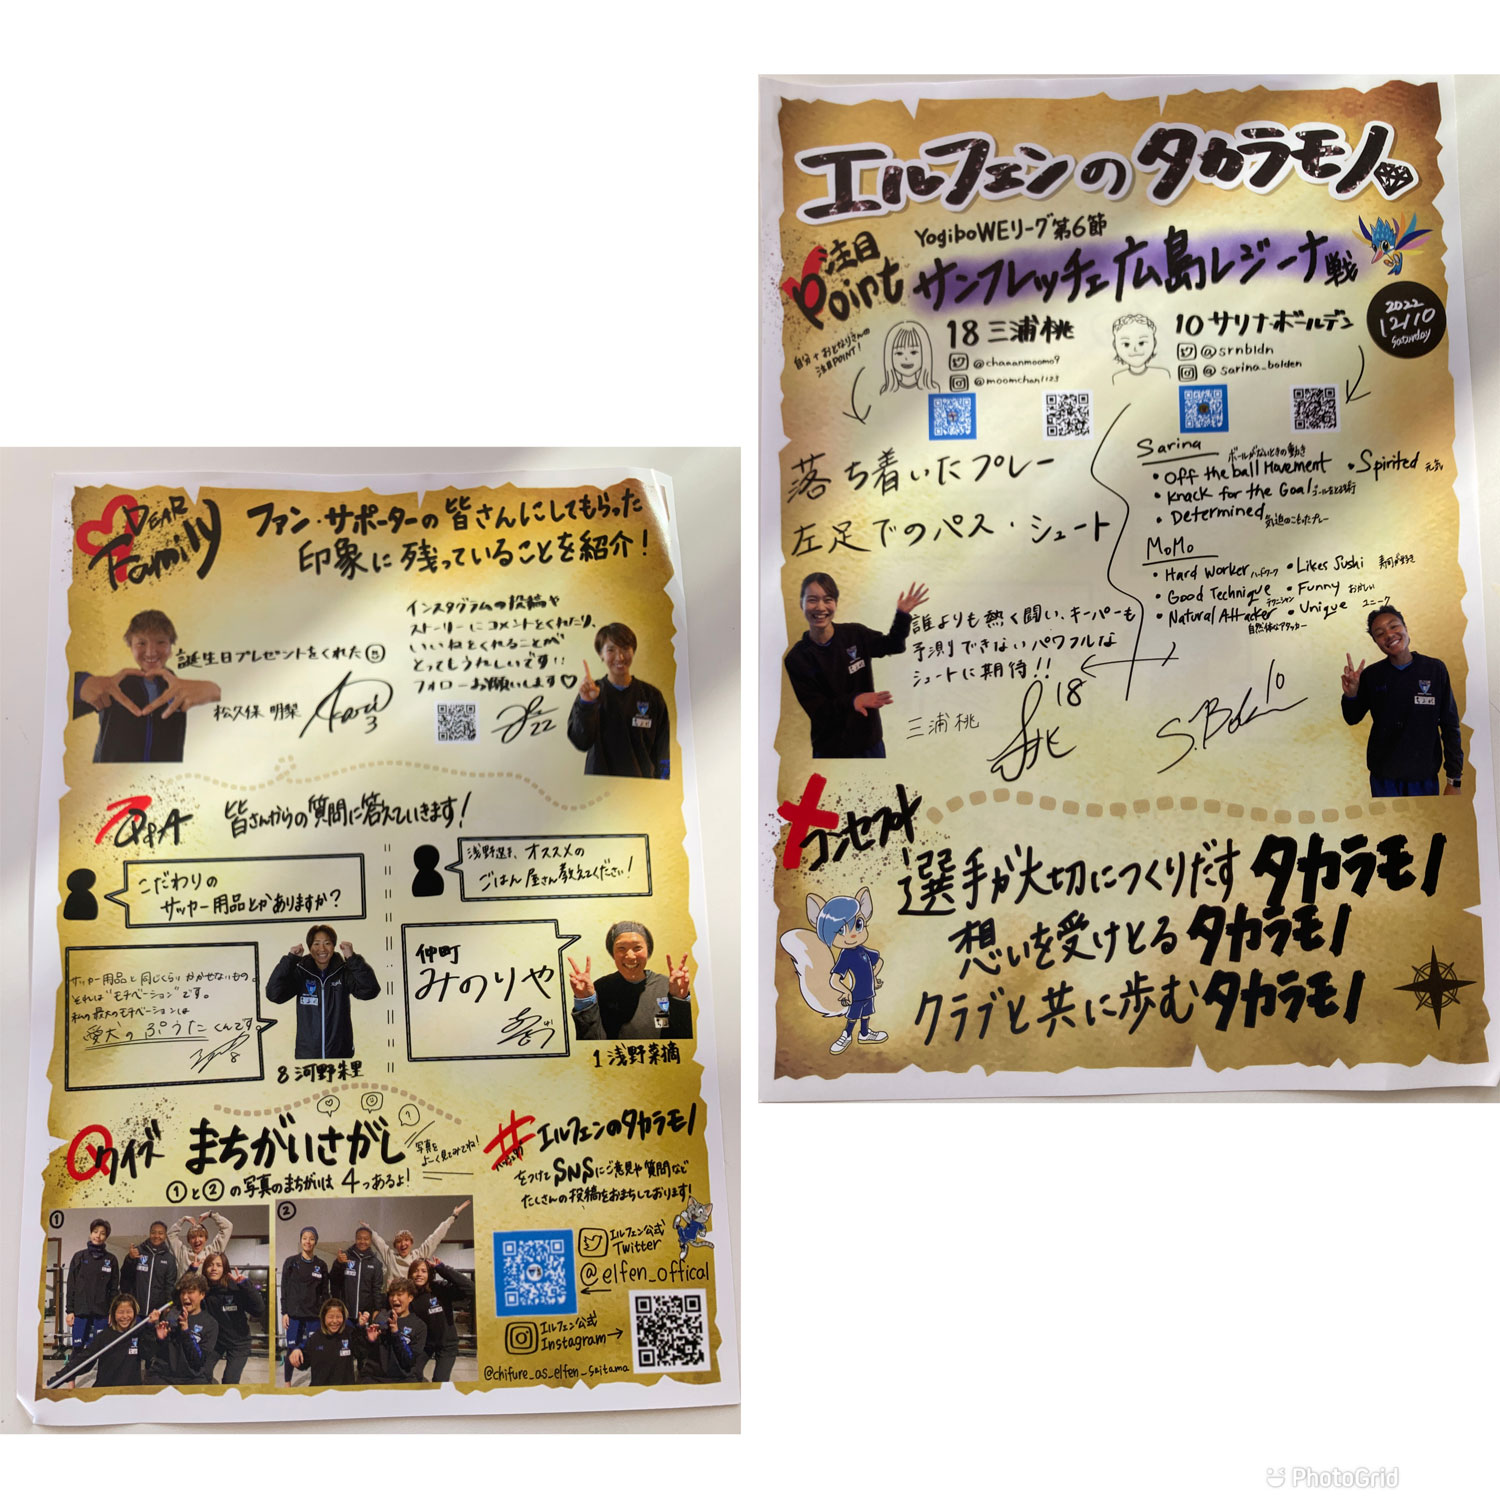 DEAR
Family
ファン・サポーターの皆さんにしてもらった
印象に残っていることを紹介！
誕生日プレゼントをくれた⑤
松久保 明梨
3
インスタグラムの投稿や
ストーリーにコメントをくれたり、
いいねをくれることが
とってもうれしいです!!
フォローお願いします♡
22
Q&A
皆さんからの質問に答えていきます！
こだわりの
サッカー用品とかありますか？
サッカー用品と同じくらいかかせないもの。
それは"モチベーション"です。
私の最大のモチベーションは
愛犬のぷうたくんです。
8
8 河野朱里
浅野選手、オススメの
ごはん屋さん教えてください！
仲町
みのりや
1 浅野菜摘
クイズ
まちがいさがし
写真を
よーく見てみてね！
①と②の写真のまちがいは4つあるよ！
①
②
#エルフェンのタカラモノ
をつけてSNSにご意見や質問など
たくさんの投稿をおまちしております！
エルフェン公式
Twitter
@elfen_offical
エルフェン公式
Instagram→
@chifure_as_elfen_saitama
エルフェンのタカラモノ
注目
Point
YogiboWEリーグ第6節
サンフレッチェ広島レジーナ戦
2022
12/10
Saturday
自分+おとなりさんの
注目POINT!
18 三浦桃
@chaaanmoomo9
@moomchan1123
10 サリナ・ボールデン
@srnbldn
@sarina_bolden
落ち着いたプレー
左足でのパス・シュート
誰よりも熱く闘い、キーパーも
予測できないパワフルな
シュートに期待!!
三浦桃
18
Sarina
ボールがないときの動き
・Off the ball Movement
・Spirited 元気
・Knack for the Goal
・Determined 気迫のこもったプレー
MoMo
・Hard Worker ハードワーク
・Likes Sushi 寿司が好き
・Good Technique テクニシャン
・Funny おかしい
・Natural Attacker
・Unique ユニーク
自然体なアタッカー
S. Bolden 10
コンセプト
選手が大切につくりだすタカラモノ
想いを受けとるタカラモノ
クラブと共に歩むタカラモノ
PhotoGrid